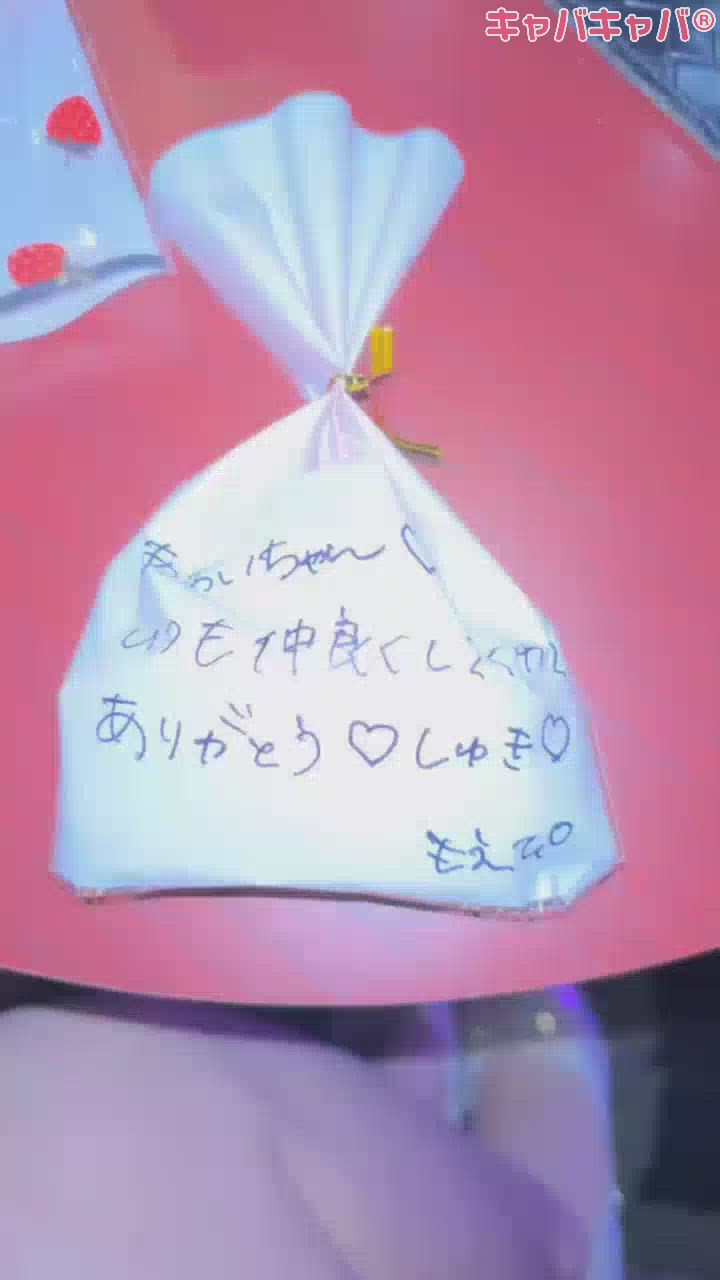 キャバキャバ®
ちゃん
も仲良くしてくれ
ありがとう♡しゅき♡
もえぴ